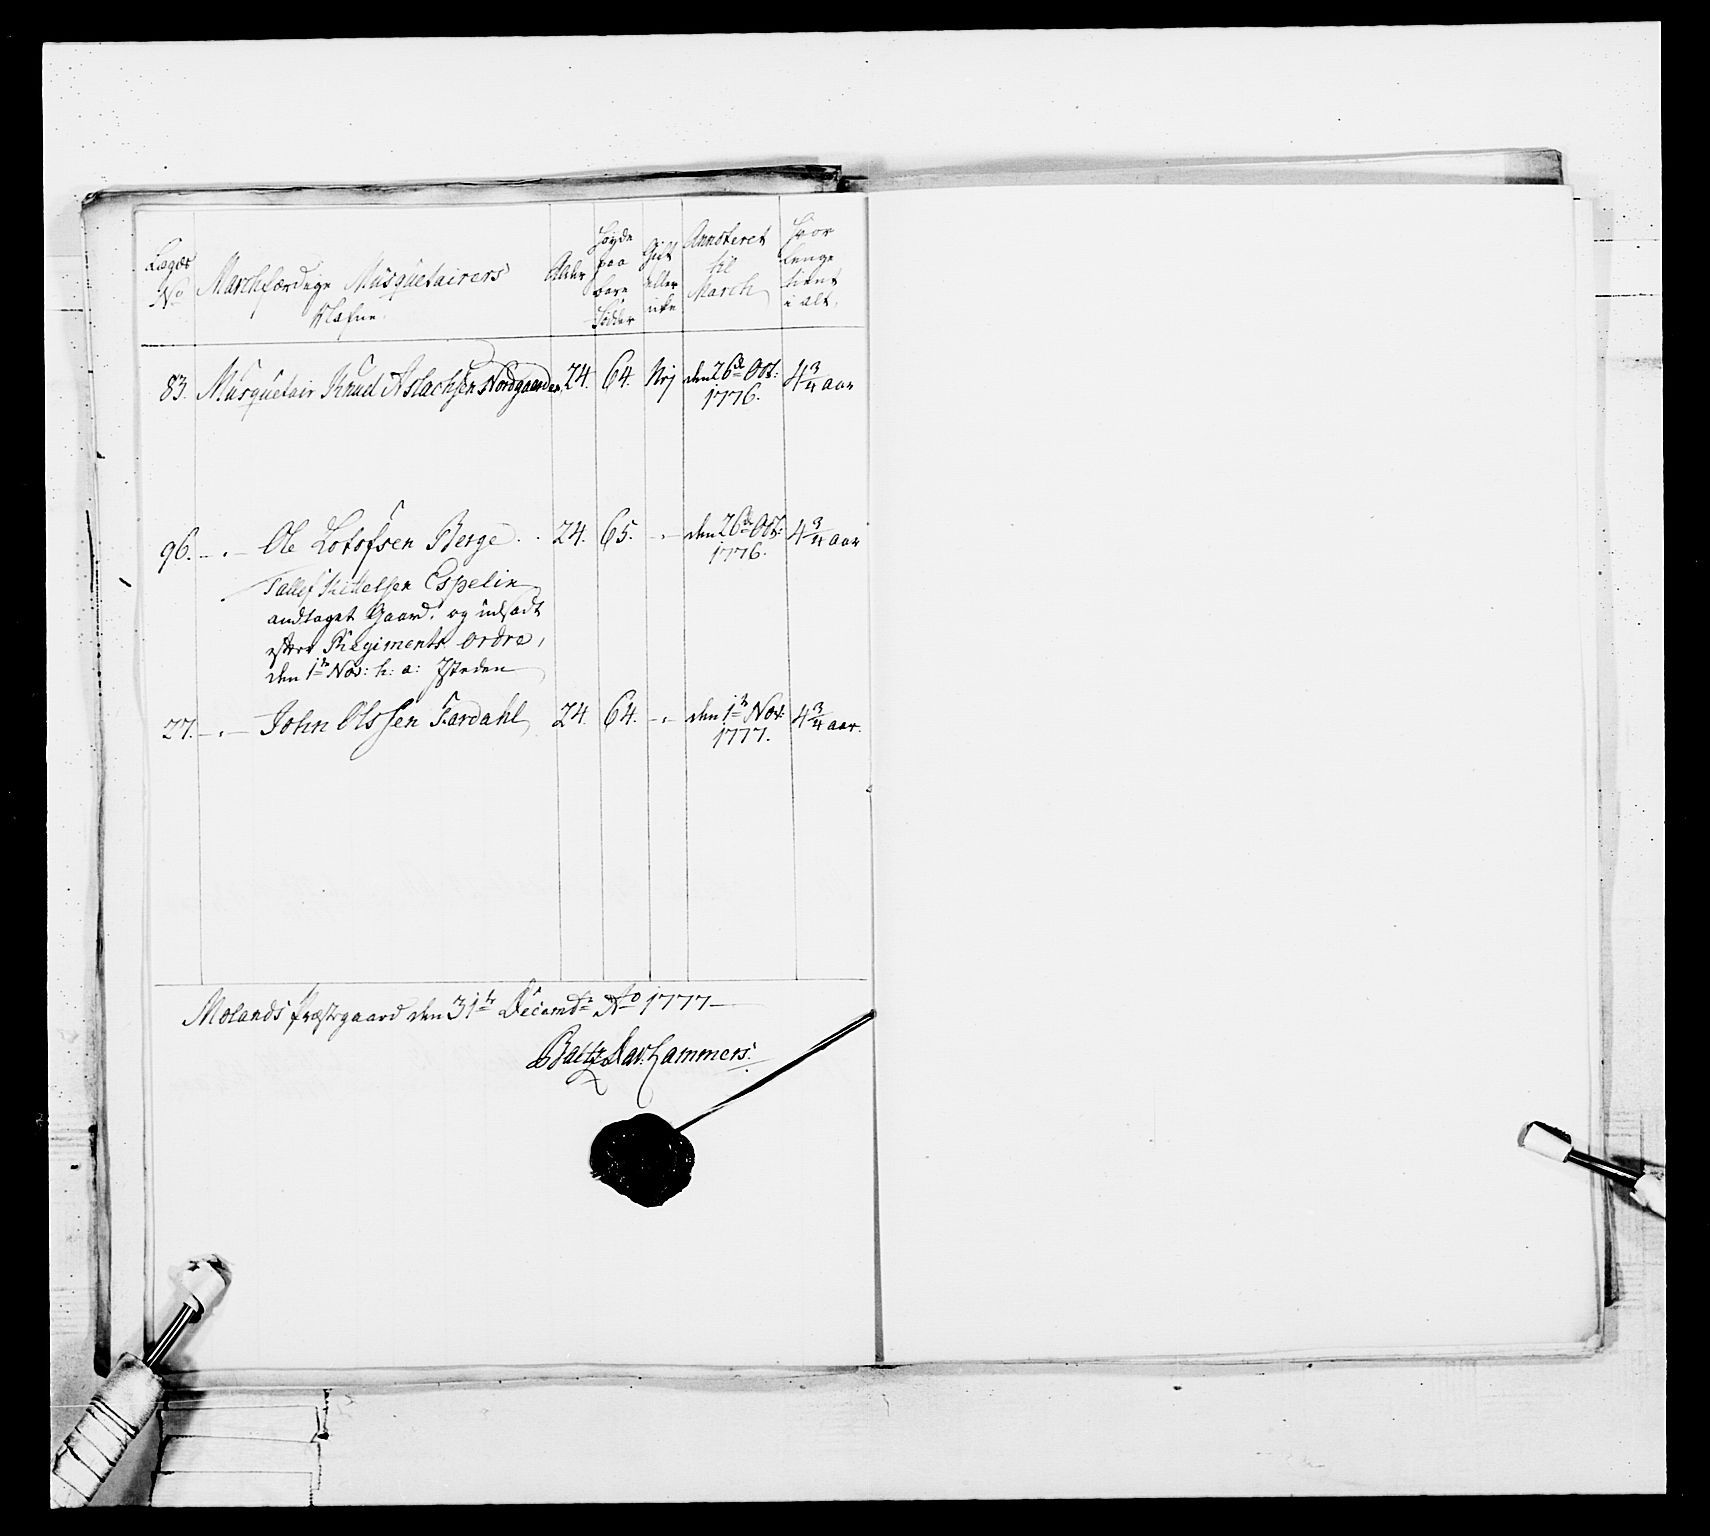 Lægds No
Marchfærdige Musquetairers Nafne.
Alder
Høyde paa bare Fødder
Gift eller icke
Annoteret til March
Hvor lenge tient i alt.
83. Musquetair Knud Aslachsen Nordgaarden 24. 64. Nej den 26de Oct: 1776. 4 3/4 aar
96. – . – Ole Lotofsen Berge . . 24. 65. – . – den 26de Oct: 1776. 4 3/4 aar
Tallef Kittelsen Espelin
andtaget Gaard, og udsadt
efter Regiments ordre,
den 1te Nov: h: a: Isteden
27. – . – John Olssen Tardahl 24. 64. – . – den 1te Nov: 1777. 4 3/4 aar.
Molands Præstegaard den 31te Decembr Ao 1777
Baltz Dav: Lammers.